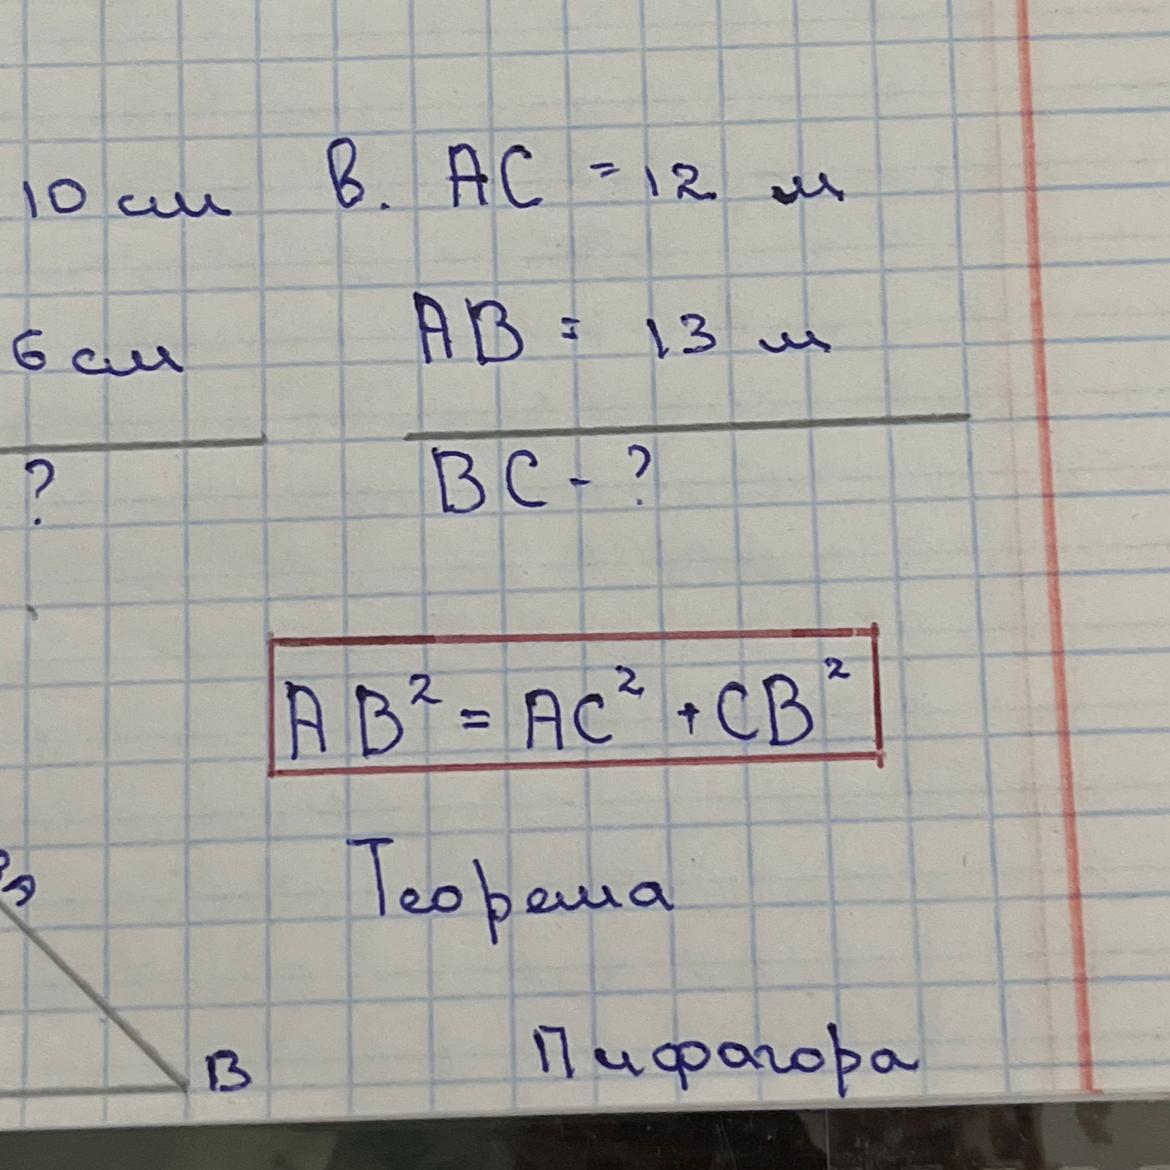 10 см в. AC = 12 м
6 см AB = 13 м
? BC - ?
AB² = AC² + CB²
Теорема
B Пифагора